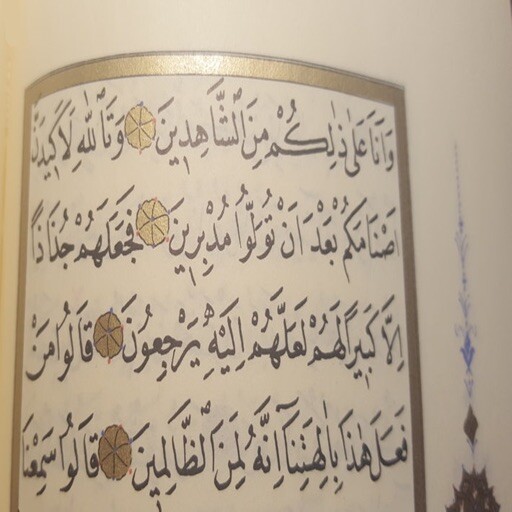 وَاَنَا۬ عَلٰى ذٰلِكُمْ مِنَ الشَّاهِدٖينَ وَتَاللّٰهِ لَاَكٖيدَنَّ
اَصْنَامَكُمْ بَعْدَ اَنْ تُوَلُّوا مُدْبِرٖينَ فَجَعَلَهُمْ جُذَاذًا
اِلَّا كَبٖيرًا لَهُمْ لَعَلَّهُمْ اِلَيْهِ يَرْجِعُونَ قَالُوا مَنْ
فَعَلَ هٰذَا بِاٰلِهَتِنَٓا اِنَّهُ لَمِنَ الظَّالِمٖينَ قَالُوا سَمِعْنَا